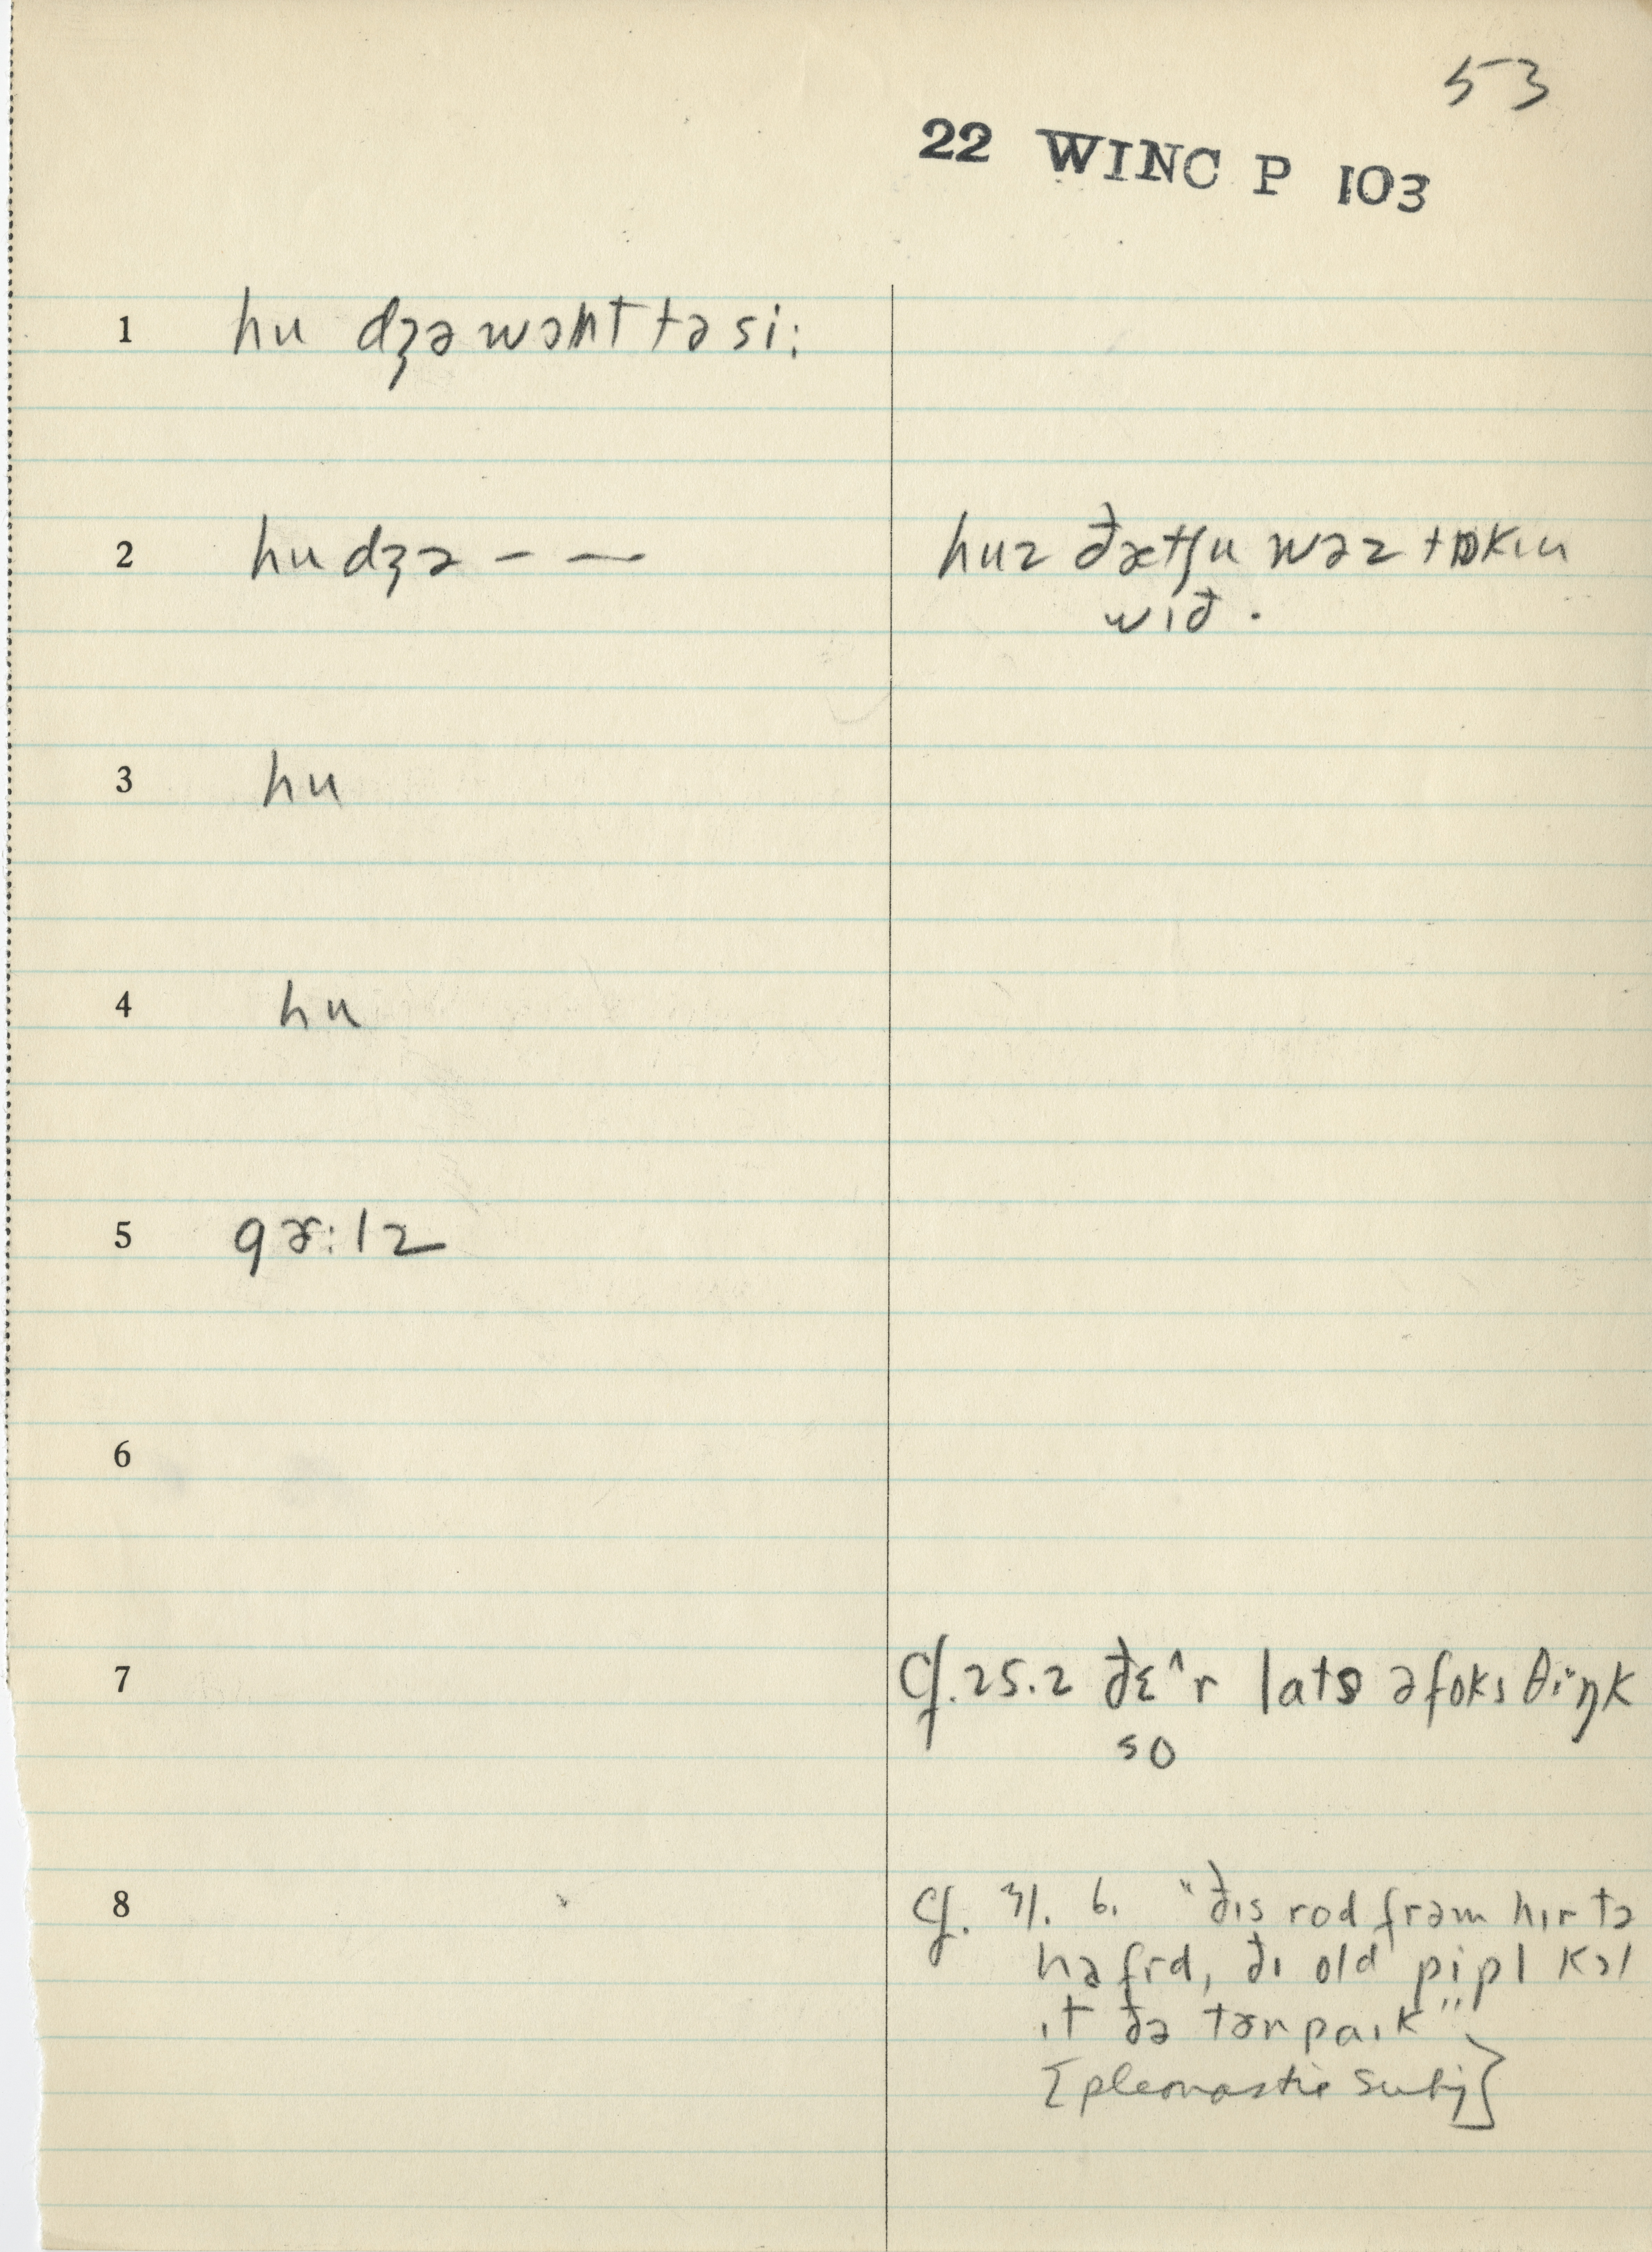 53
22 WINC P 103
1 hu dʒə wɔnt tə si:
2 hu dʒə – — huz ðætʃu wəz tɒkɪn
wɪð .
3 hu
4 hu
5 gɚ:lz
6
7 Cf. 25.2 ðɛ^r lats ə foks θiŋk
so
8 Cf. 31. 6. "ðɪs rod frəm hɪr tə
hafrd, ðɪ old pipl kɔl
ɪt ðə tɚnpaɪk"
[pleonastic subj]